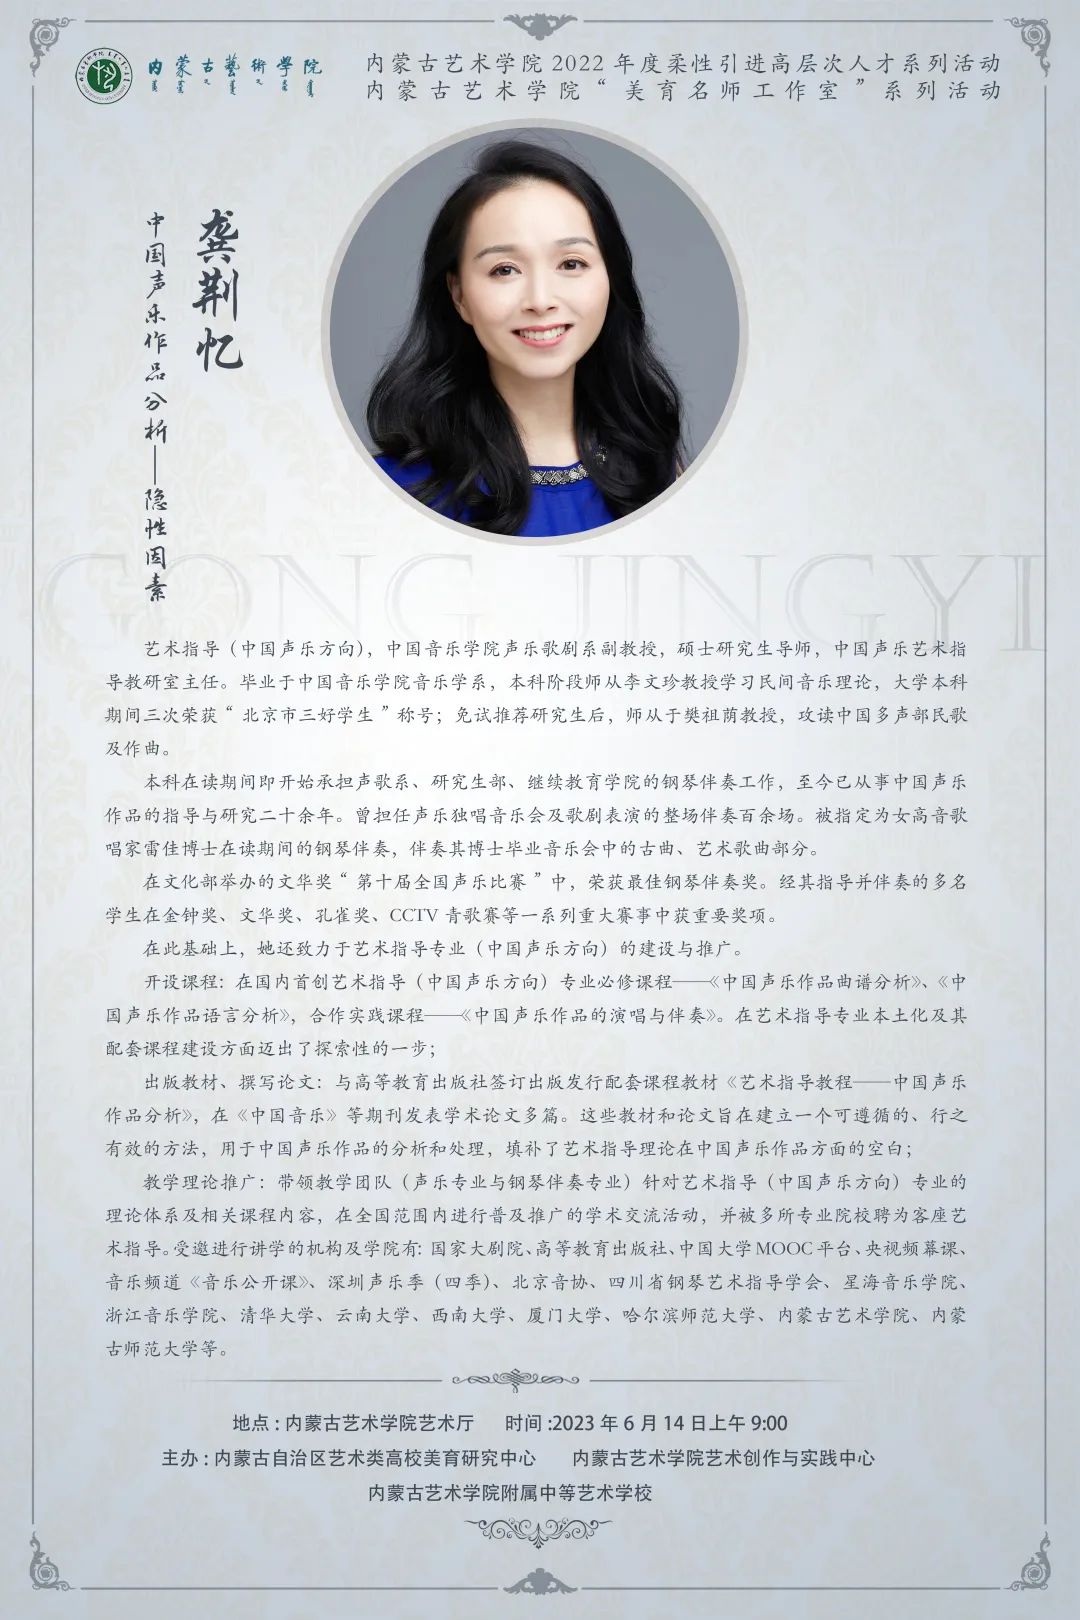 内蒙古藝術學院
内蒙古艺术学院 2022 年度柔性引进高层次人才系列活动
内蒙古艺术学院“美育名师工作室”系列活动
龚荆忆
中国声乐作品分析——隐性因素
GONG JINGYI
艺术指导（中国声乐方向），中国音乐学院声乐歌剧系副教授，硕士研究生导师，中国声乐艺术指
导教研室主任。毕业于中国音乐学院音乐学系，本科阶段师从李文珍教授学习民间音乐理论，大学本科
期间三次荣获“北京市三好学生”称号；免试推荐研究生后，师从于樊祖荫教授，攻读中国多声部民歌
及作曲。
本科在读期间即开始承担声歌系、研究生部、继续教育学院的钢琴伴奏工作，至今已从事中国声乐
作品的指导与研究二十余年。曾担任声乐独唱音乐会及歌剧表演的整场伴奏百余场。被指定为女高音歌
唱家雷佳博士在读期间的钢琴伴奏，伴奏其博士毕业音乐会中的古曲、艺术歌曲部分。
在文化部举办的文华奖“第十届全国声乐比赛”中，荣获最佳钢琴伴奏奖。经其指导并伴奏的多名
学生在金钟奖、文华奖、孔雀奖、CCTV 青歌赛等一系列重大赛事中获重要奖项。
在此基础上，她还致力于艺术指导专业（中国声乐方向）的建设与推广。
开设课程：在国内首创艺术指导（中国声乐方向）专业必修课程——《中国声乐作品曲谱分析》、《中
国声乐作品语言分析》，合作实践课程——《中国声乐作品的演唱与伴奏》。在艺术指导专业本土化及其
配套课程建设方面迈出了探索性的一步；
出版教材、撰写论文：与高等教育出版社签订出版发行配套课程教材《艺术指导教程——中国声乐
作品分析》，在《中国音乐》等期刊发表学术论文多篇。这些教材和论文旨在建立一个可遵循的、行之
有效的方法，用于中国声乐作品的分析和处理，填补了艺术指导理论在中国声乐作品方面的空白；
教学理论推广：带领教学团队（声乐专业与钢琴伴奏专业）针对艺术指导（中国声乐方向）专业的
理论体系及相关课程内容，在全国范围内进行普及推广的学术交流活动，并被多所专业院校聘为客座艺
术指导。受邀进行讲学的机构及学院有：国家大剧院、高等教育出版社、中国大学MOOC平台、央视频幕课、
音乐频道《音乐公开课》、深圳声乐季（四季）、北京音协、四川省钢琴艺术指导学会、星海音乐学院、
浙江音乐学院、清华大学、云南大学、西南大学、厦门大学、哈尔滨师范大学、内蒙古艺术学院、内蒙
古师范大学等。
地点：内蒙古艺术学院艺术厅 时间：2023 年 6 月 14 日上午 9:00
主办：内蒙古自治区艺术类高校美育研究中心 内蒙古艺术学院艺术创作与实践中心
内蒙古艺术学院附属中等艺术学校